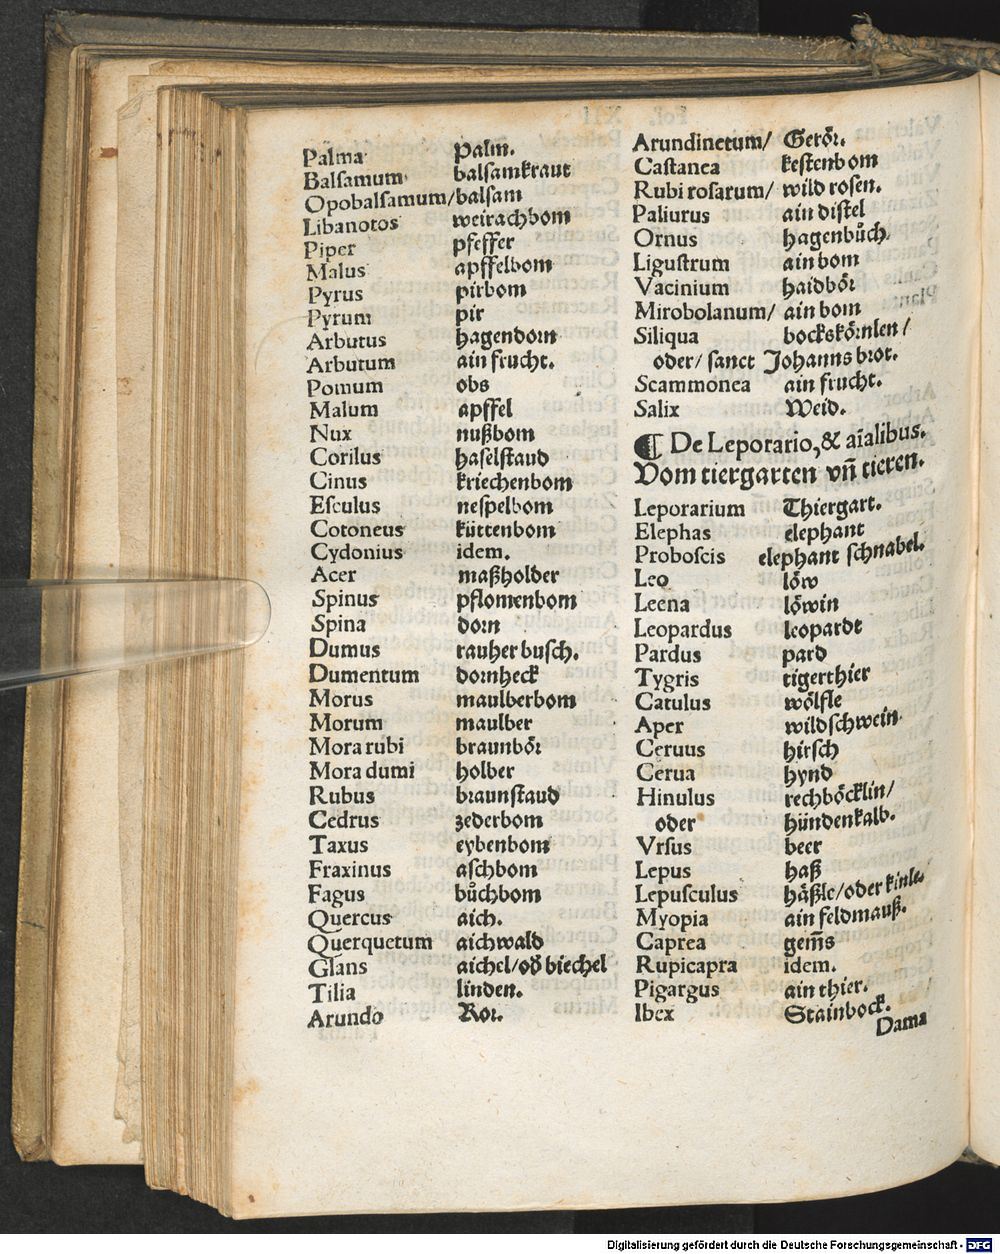 Palma palm.
Balsamum balsamkraut
Opobalsamum/ balsam
Libanotos weirachbom
Piper pfeffer
Malus apffelbom
Pyrus pirbom
Pyrum pir
Arbutus hagendorn
Arbutum ain frucht.
Pomum obs
Malum apffel
Nux nußbom
Corilus haselstaud
Cinus kriechenbom
Esculus nespelbom
Cotoneus küttenbom
Cydonius idem.
Acer maßholder
Spinus pflomenbom
Spina dorn
Dumus rauher busch.
Dumentum dornheck
Morus maulberbom
Morum maulber
Mora rubi braunbör
Mora dumi holber
Rubus braunstaud
Cedrus zederbom
Taxus eybenbom
Fraxinus aschbom
Fagus bůchbom
Quercus aich.
Querquetum aichwald
Glans aichel/ od̄ biechel
Tilia linden.
Arundo Ror.
Arundinetum/ Gerör.
Castanea kestenbom
Rubi rosarum/ wild rosen.
Paliurus ain distel
Ornus hagenbůch.
Ligustrum ain bom
Vacinium haidbör
Mirobolanum/ ain bom
Siliqua bockskörnlen/
oder/ sanct Johanns brot.
Scammonea ain frucht.
Salix Weid.
¶ De Leporario, & aīalibus.
Vom tiergarten vn̄ tieren.
Leporarium Thiergart.
Elephas elephant
Proboscis elephant schnabel.
Leo löw
Leena löwin
Leopardus leopardt
Pardus pard
Tygris tigerthier
Catulus wölfle
Aper wildschwein
Ceruus hirsch
Cerua hynd
Hinulus rechböcklin/
oder hündenkalb.
Vrsus beer
Lepus haß
Lepusculus häßle/ oder kinle.
Myopia ain feldmauß.
Caprea gem̄s
Rupicapra idem.
Pigargus ain thier.
Ibex Stainbock.
Dama
Digitalisierung gefördert durch die Deutsche Forschungsgemeinschaft - DFG